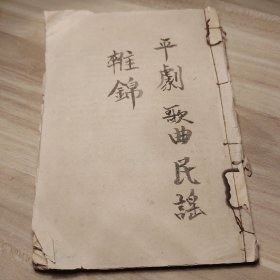 平劇歌曲民謠
雜錦